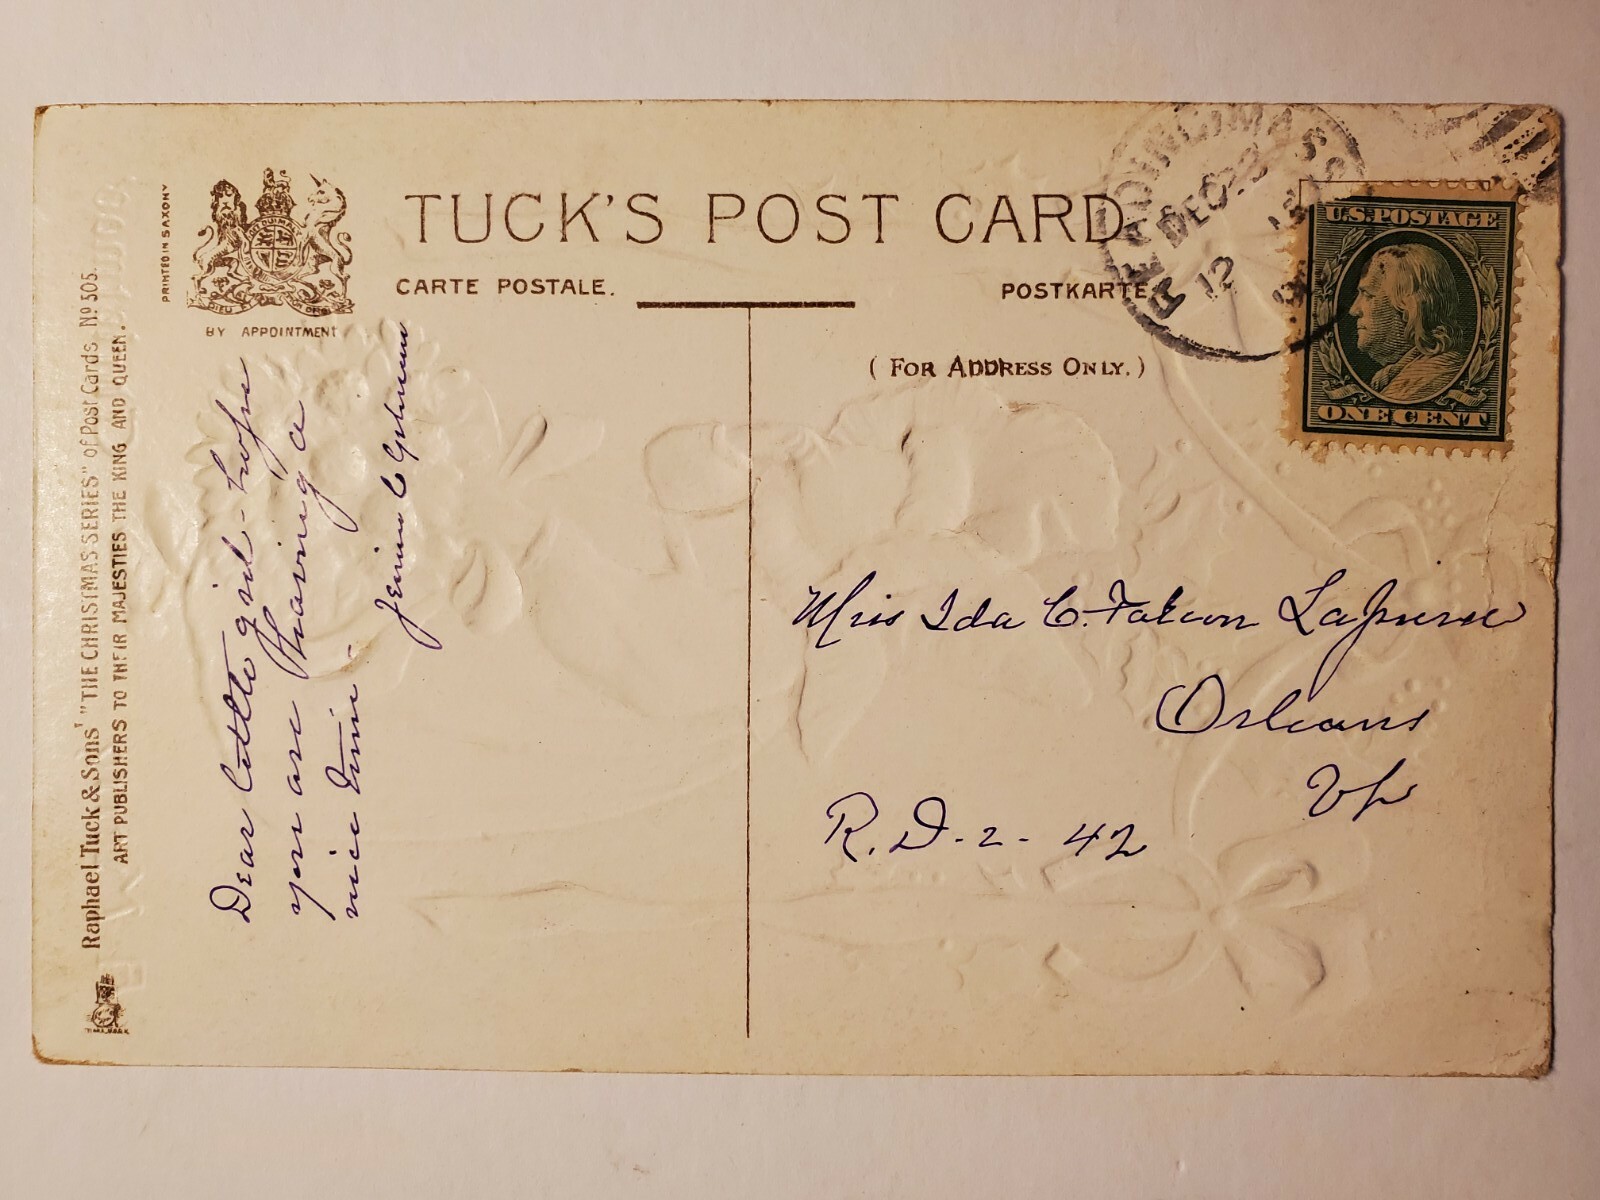 TUCK'S POST CARD
CARTE POSTALE.
POSTKARTE
(FOR ADDRESS ONLY.)
PRINTED IN SAXONY
BY APPOINTMENT
Raphael Tuck & Sons' "THE CHRISTMAS SERIES" of Post Cards Nº 505.
ART PUBLISHERS TO THEIR MAJESTIES THE KING AND QUEEN.
DEC 23
12
U.S. POSTAGE
ONE CENT
Dear little girl - hope
you are having a
nice time -
Miss Ida C.
Orleans
Vt
R. D - 2 - 42